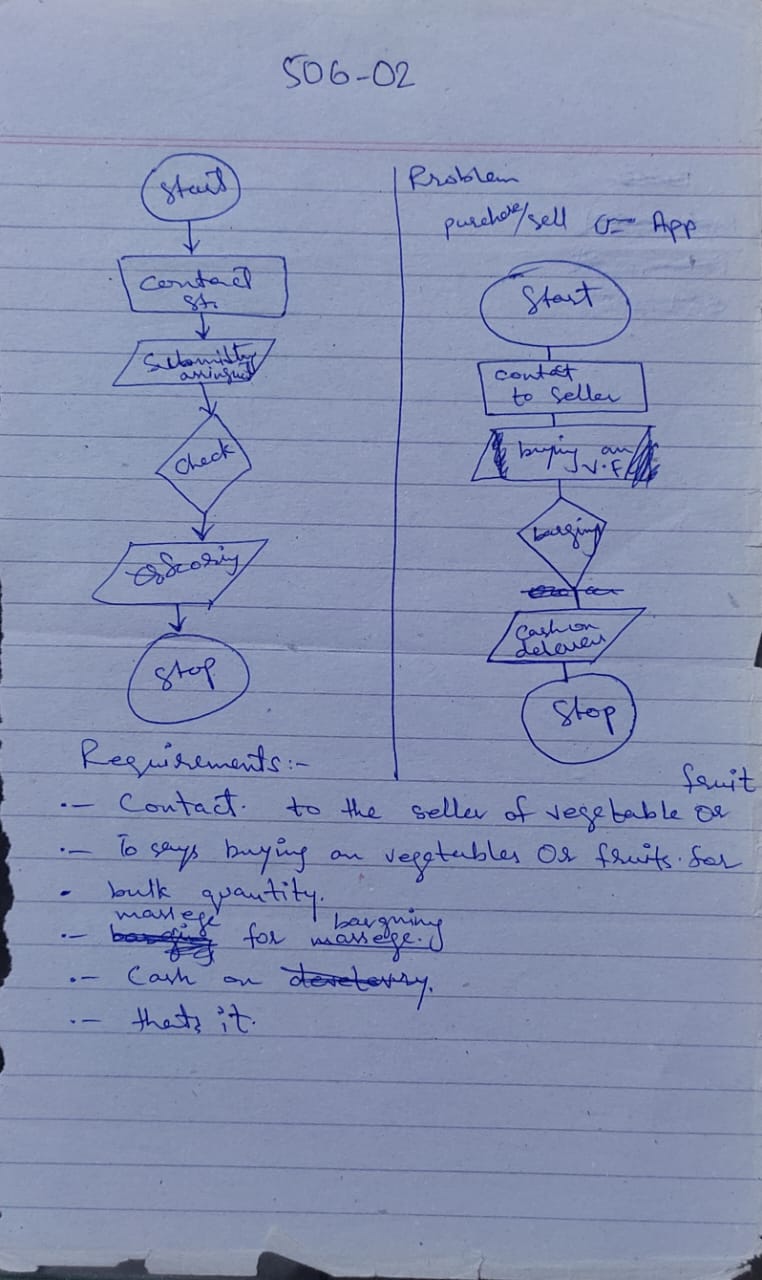 506-02
Start
Contact
St.
Submitt
assingnet
Check
Scoring
Stop
Problem
purchase/sell App
Start
contact
to seller
buying on
V.F
barging
Cash on
delevery
Stop
Requirements:-
fruit
.- Contact. to the seller of vegetable or
.- To says buying on vegetables Or fruits. for
. bulk quantity.
massege bargning
.- for massege.
.- Cash on develevry.
.- thats it.